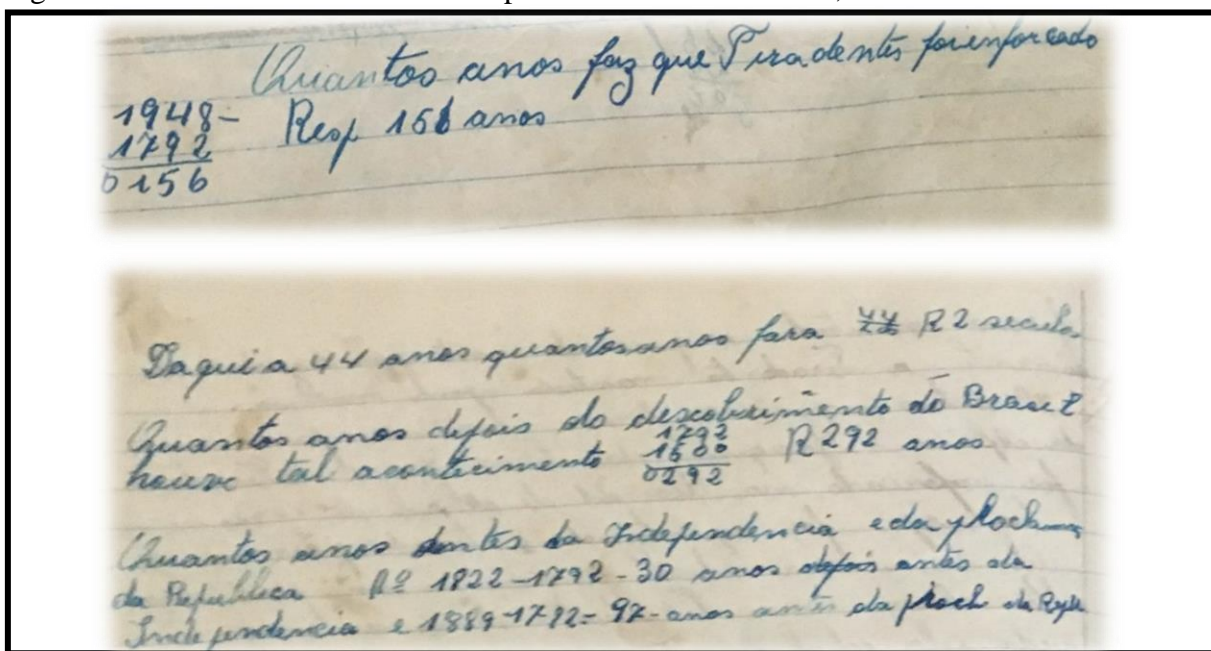 Quantos anos faz que Tiradentes foi enforcado
1948- Resp 156 anos
1792
0156
Daqui a 44 anos quantos anos fara 44 R 2 seculo
Quantos anos depois do descobrimento do Brasil
houve tal acontecimento 1792 R 292 anos
1500
0292
Quantos anos antes da Independencia e da proclam
da Republica Rº 1822-1792-30 anos depois antes da
Independencia e 1889-1792=97-anos antes da proch da Repb